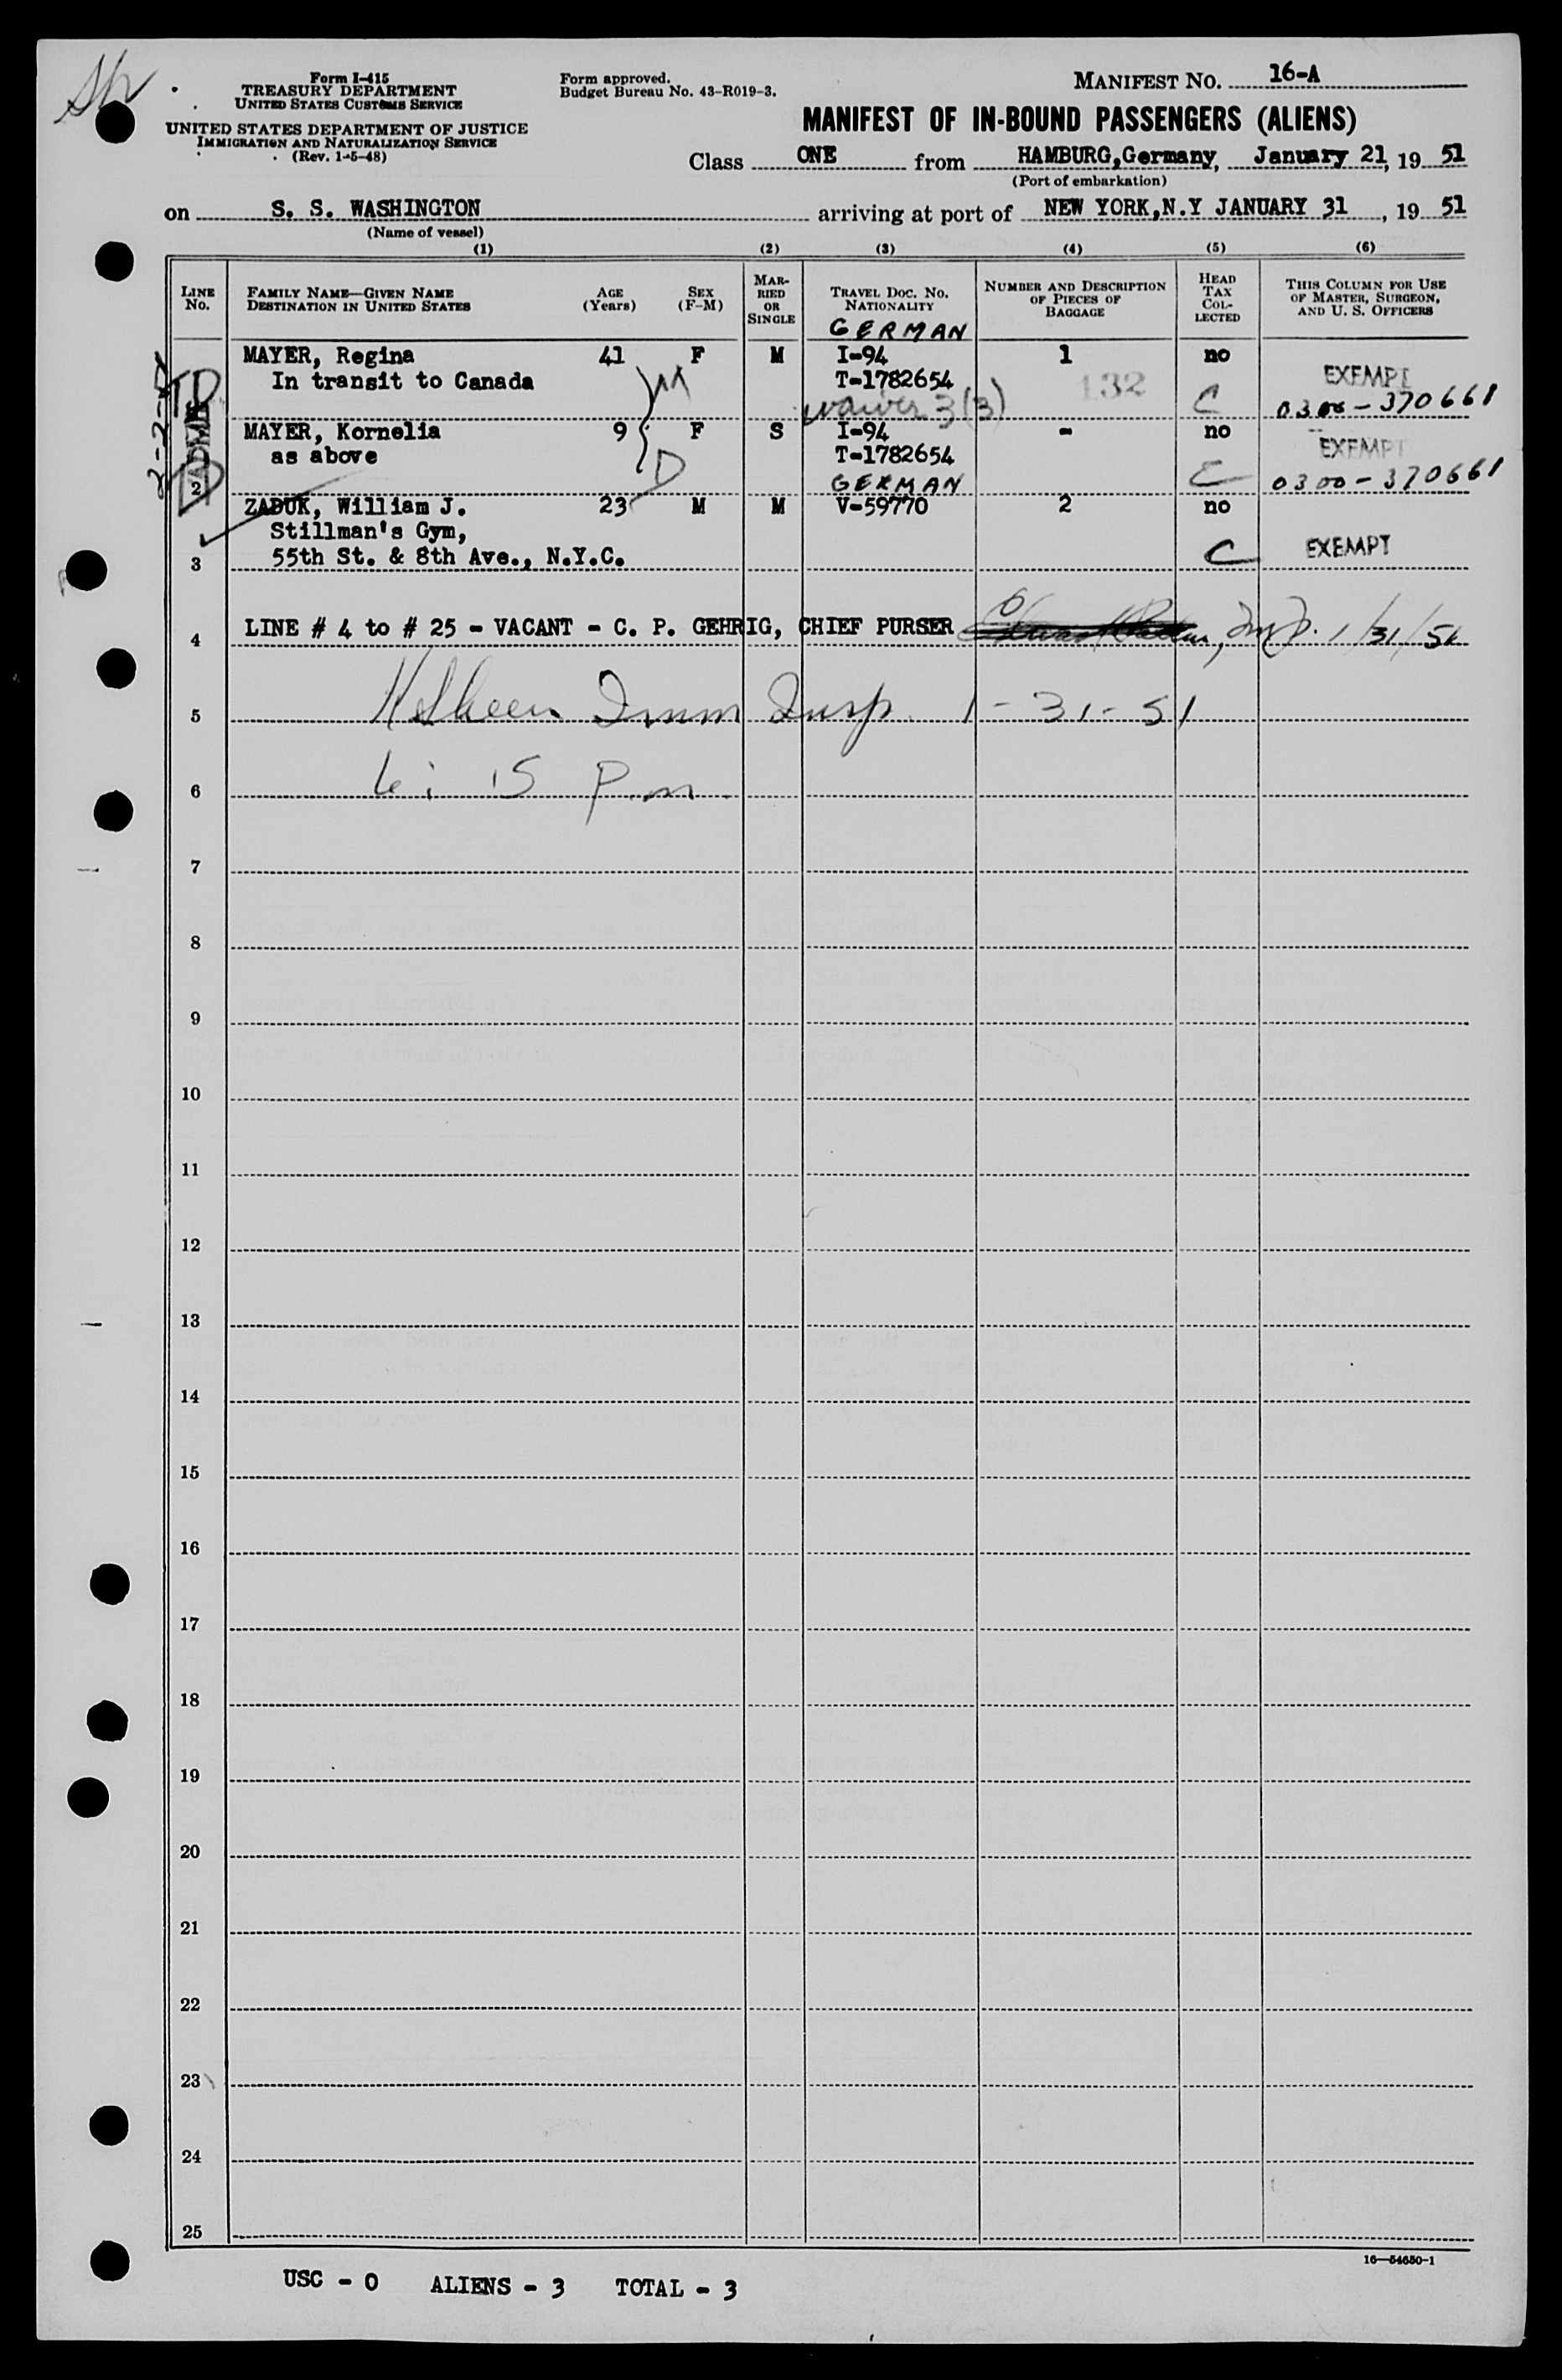 Form I-415
TREASURY DEPARTMENT
UNITED STATES CUSTOMS SERVICE
UNITED STATES DEPARTMENT OF JUSTICE
IMMIGRATION AND NATURALIZATION SERVICE
(Rev. 1-5-48)
Form approved.
Budget Bureau No. 43-R019-3.
MANIFEST NO. 16-A
MANIFEST OF IN-BOUND PASSENGERS (ALIENS)
Class ONE from HAMBURG,Germany, January 21, 19 51
(Port of embarkation)
on S. S. WASHINGTON arriving at port of NEW YORK,N.Y JANUARY 31, 19 51
(Name of vessel)
(1) (2) (3) (4) (5) (6)
LINE No. FAMILY NAME—GIVEN NAME DESTINATION IN UNITED STATES AGE (Years) SEX (F-M) MARRIED OR SINGLE TRAVEL DOC. NO. NATIONALITY NUMBER AND DESCRIPTION OF PIECES OF BAGGAGE HEAD TAX COLLECTED THIS COLUMN FOR USE OF MASTER, SURGEON, AND U. S. OFFICERS
GERMAN
MAYER, Regina 41 F M I-94 1 no
In transit to Canada T-1782654 132 C EXEMPT
waiver 3(3) 0300-370661
TD
2-2-
M
MAYER, Kornelia 9 F S I-94 - no
as above T-1782654 EXEMPT
2 D GERMAN C 0300-370661
ZADUK, William J. 23 M M V-59770 2 no
Stillman's Gym,
3 55th St. & 8th Ave., N.Y.C. C EXEMPT
4 LINE # 4 to # 25 - VACANT - C. P. GEHRIG, CHIEF PURSER 1/31/51
5 Imm Insp. 1-31-51
6 6:15 P.m.
7
8
9
10
11
12
13
14
15
16
17
18
19
20
21
22
23
24
25
16—54650-1
USC - 0 ALIENS - 3 TOTAL - 3